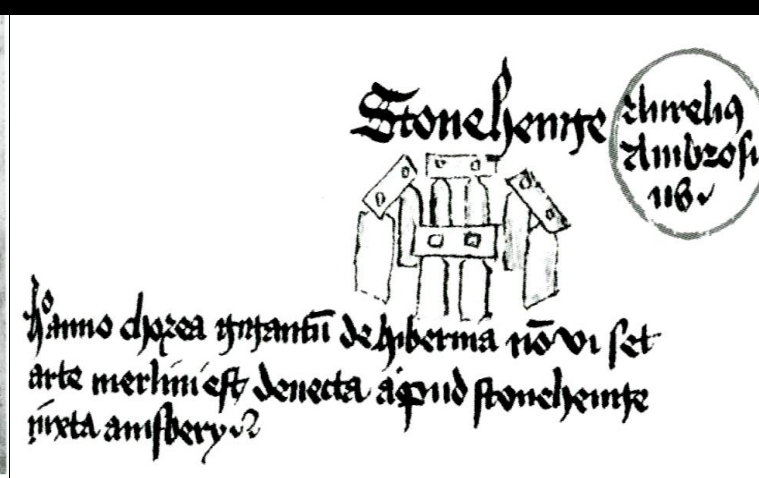 Stonehenge
Aurelius
Ambrosi
us
ho anno chorea gigantū de hibernia nō vi set
arte merlini est devecta apud stonehenge
iuxta amisbery